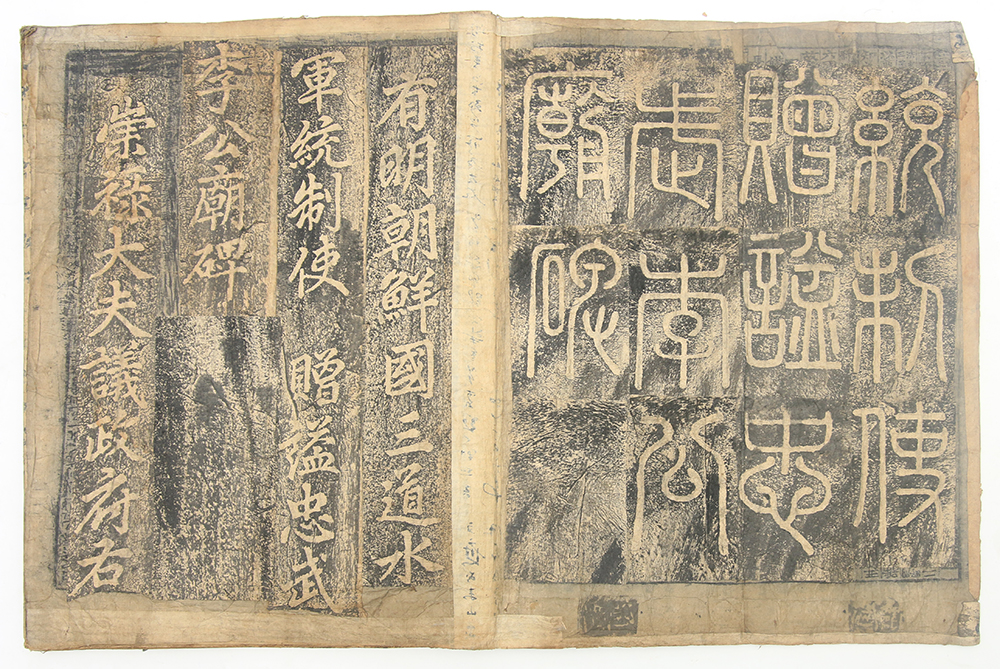 統制使
贈諡忠
武李公
廟碑
有明朝鮮國三道水
軍統制使 贈諡忠武
李公廟碑
崇祿大夫議政府右